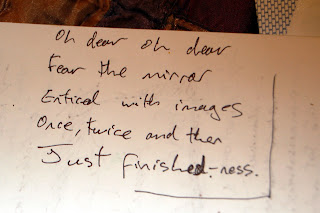 Oh dear oh dear
Fear the mirror
Enticed with images
Once, twice and then
Just finished-ness.